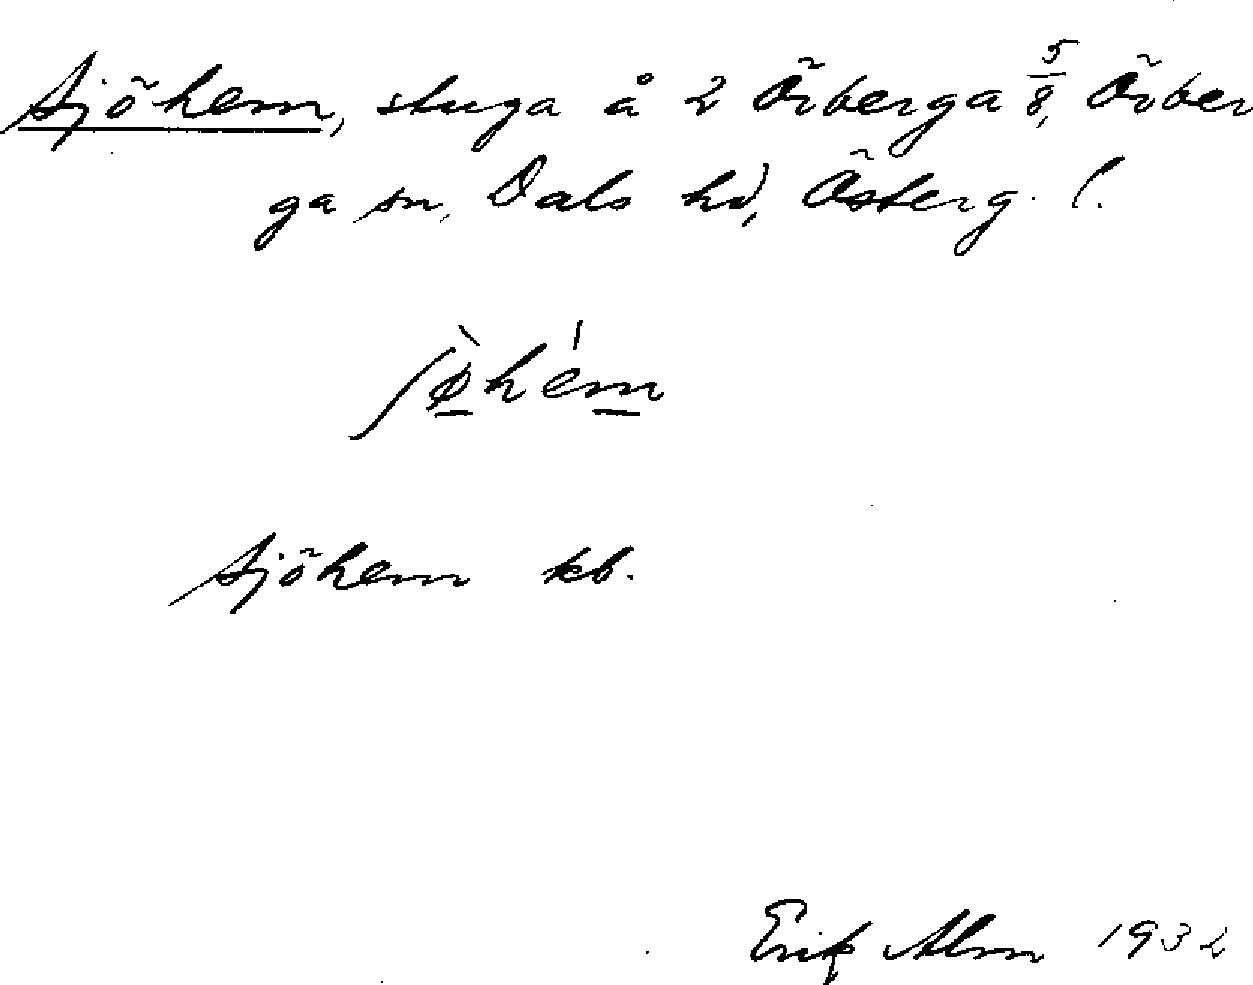 Sjöhem, stuga å 2 Örberga 5/8, Örber
ga sn, Dals hd, Österg. l.
ʃø̱̀hém̱
Sjöhem kb.
Erik Alm 1932